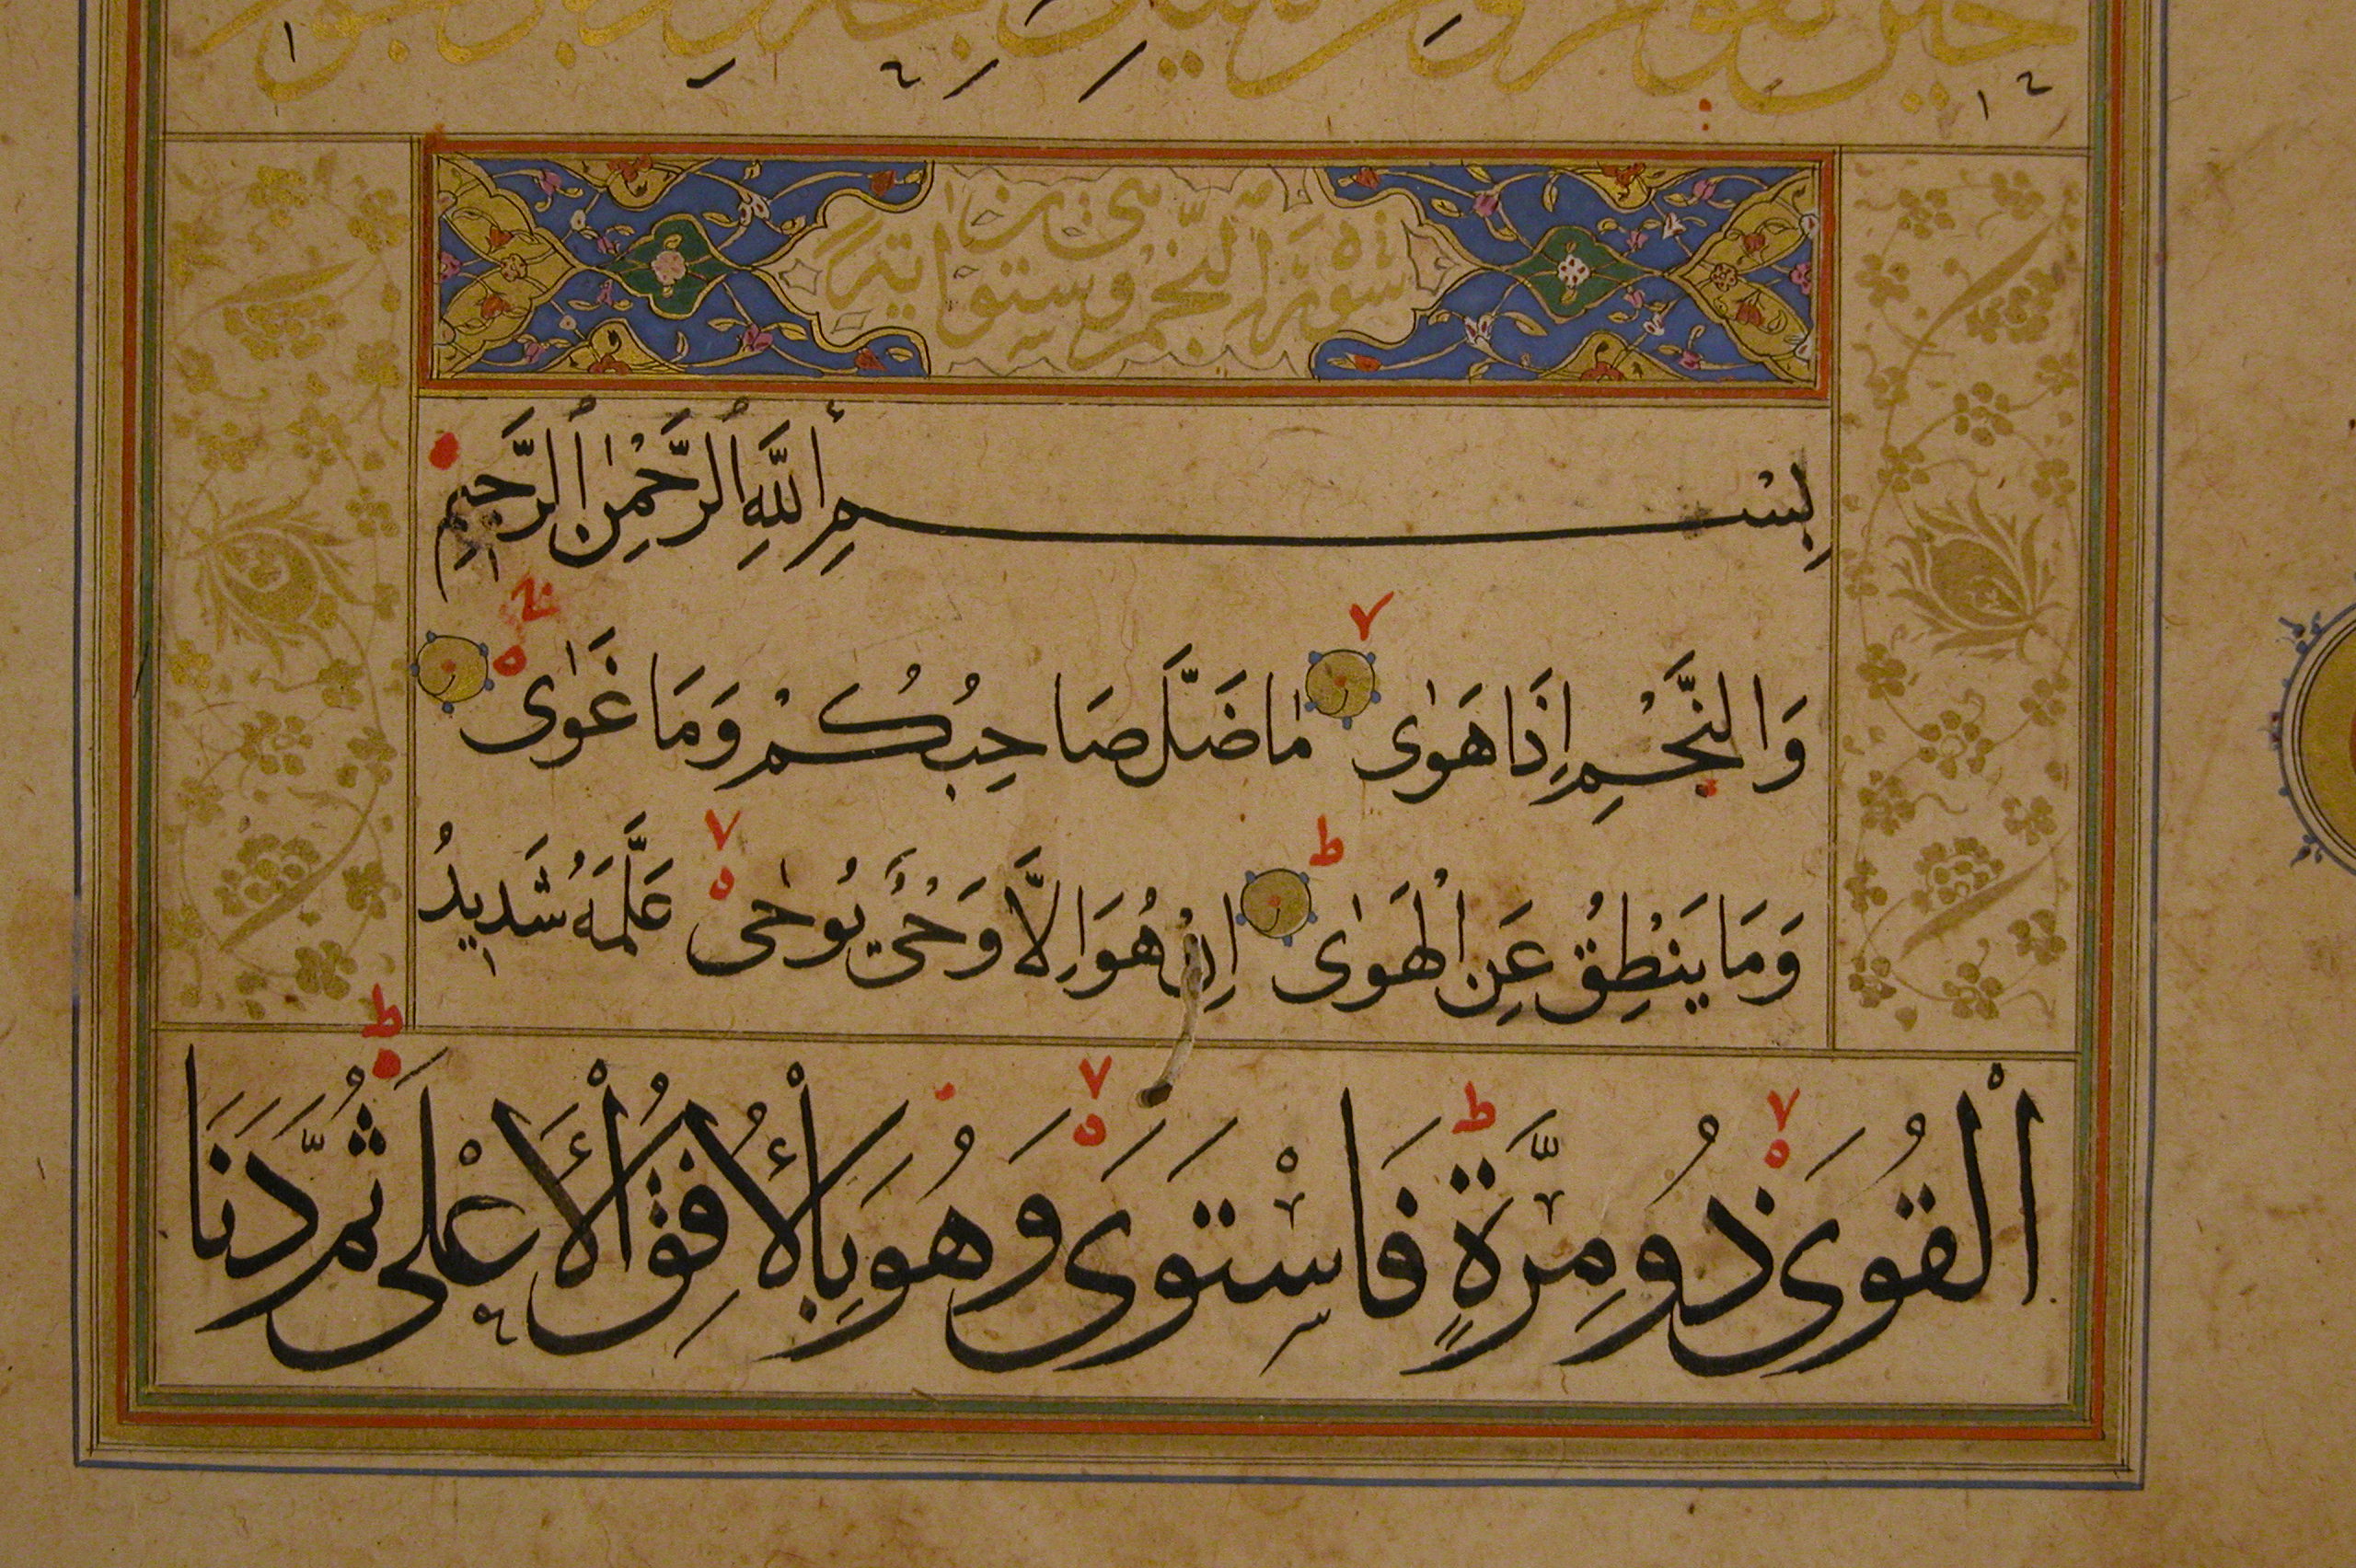 حين تقوم ومن الليل
سُورَة النَّجم وستون اية
بِسْمِ اللَّهِ الرَّحْمٰنِ الرَّحِيمِ
وَالنَّجْمِ اِذَا هَوٰى مَا ضَلَّ صَاحِبُكُمْ وَمَا غَوٰى
وَمَا يَنْطِقُ عَنِ الْهَوٰى اِنْ هُوَ اِلَّا وَحْيٌ يُوحٰى عَلَّمَهُ شَدِيدُ
الْقُوَى ذُو مِرَّةٍ فَاسْتَوَى وَهُوَ بِالْأُفُقِ الْأَعْلَى ثُمَّ دَنَا